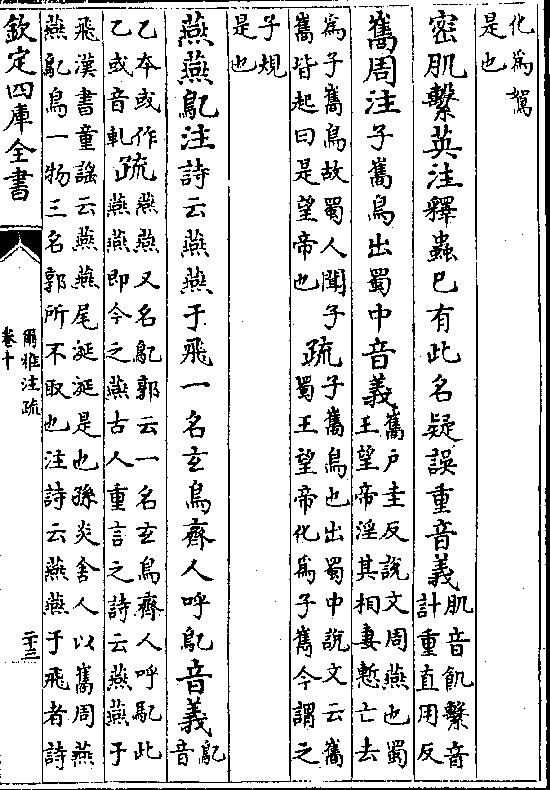 化為鴽
是也
密肌繫英注釋蟲已有此名疑誤重音義肌音飢繫音
計重直用反
巂周注子巂鳥出蜀中音義巂戶圭反說文周燕也蜀
王望帝淫其相妻慙亡去
為子巂鳥故蜀人聞子
巂皆起曰是望帝也疏子巂鳥也出蜀中說文云巂
蜀王望帝化為子巂今謂之
子規
是也
燕燕鳦注詩云燕燕于飛一名玄鳥齊人呼鳦音義鳦
音
乙本或作
乙或音軋疏燕燕又名鳦郭云一名玄鳥齊人呼鳦此
燕燕即今之燕古人重言之詩云燕燕于
飛漢書童謠云燕燕尾涎涎是也孫炎舍人以巂周燕
燕鳦鳥一物三名郭所不取也注詩云燕燕于飛者詩
欽定四庫全書
爾雅注疏
卷十
二十三